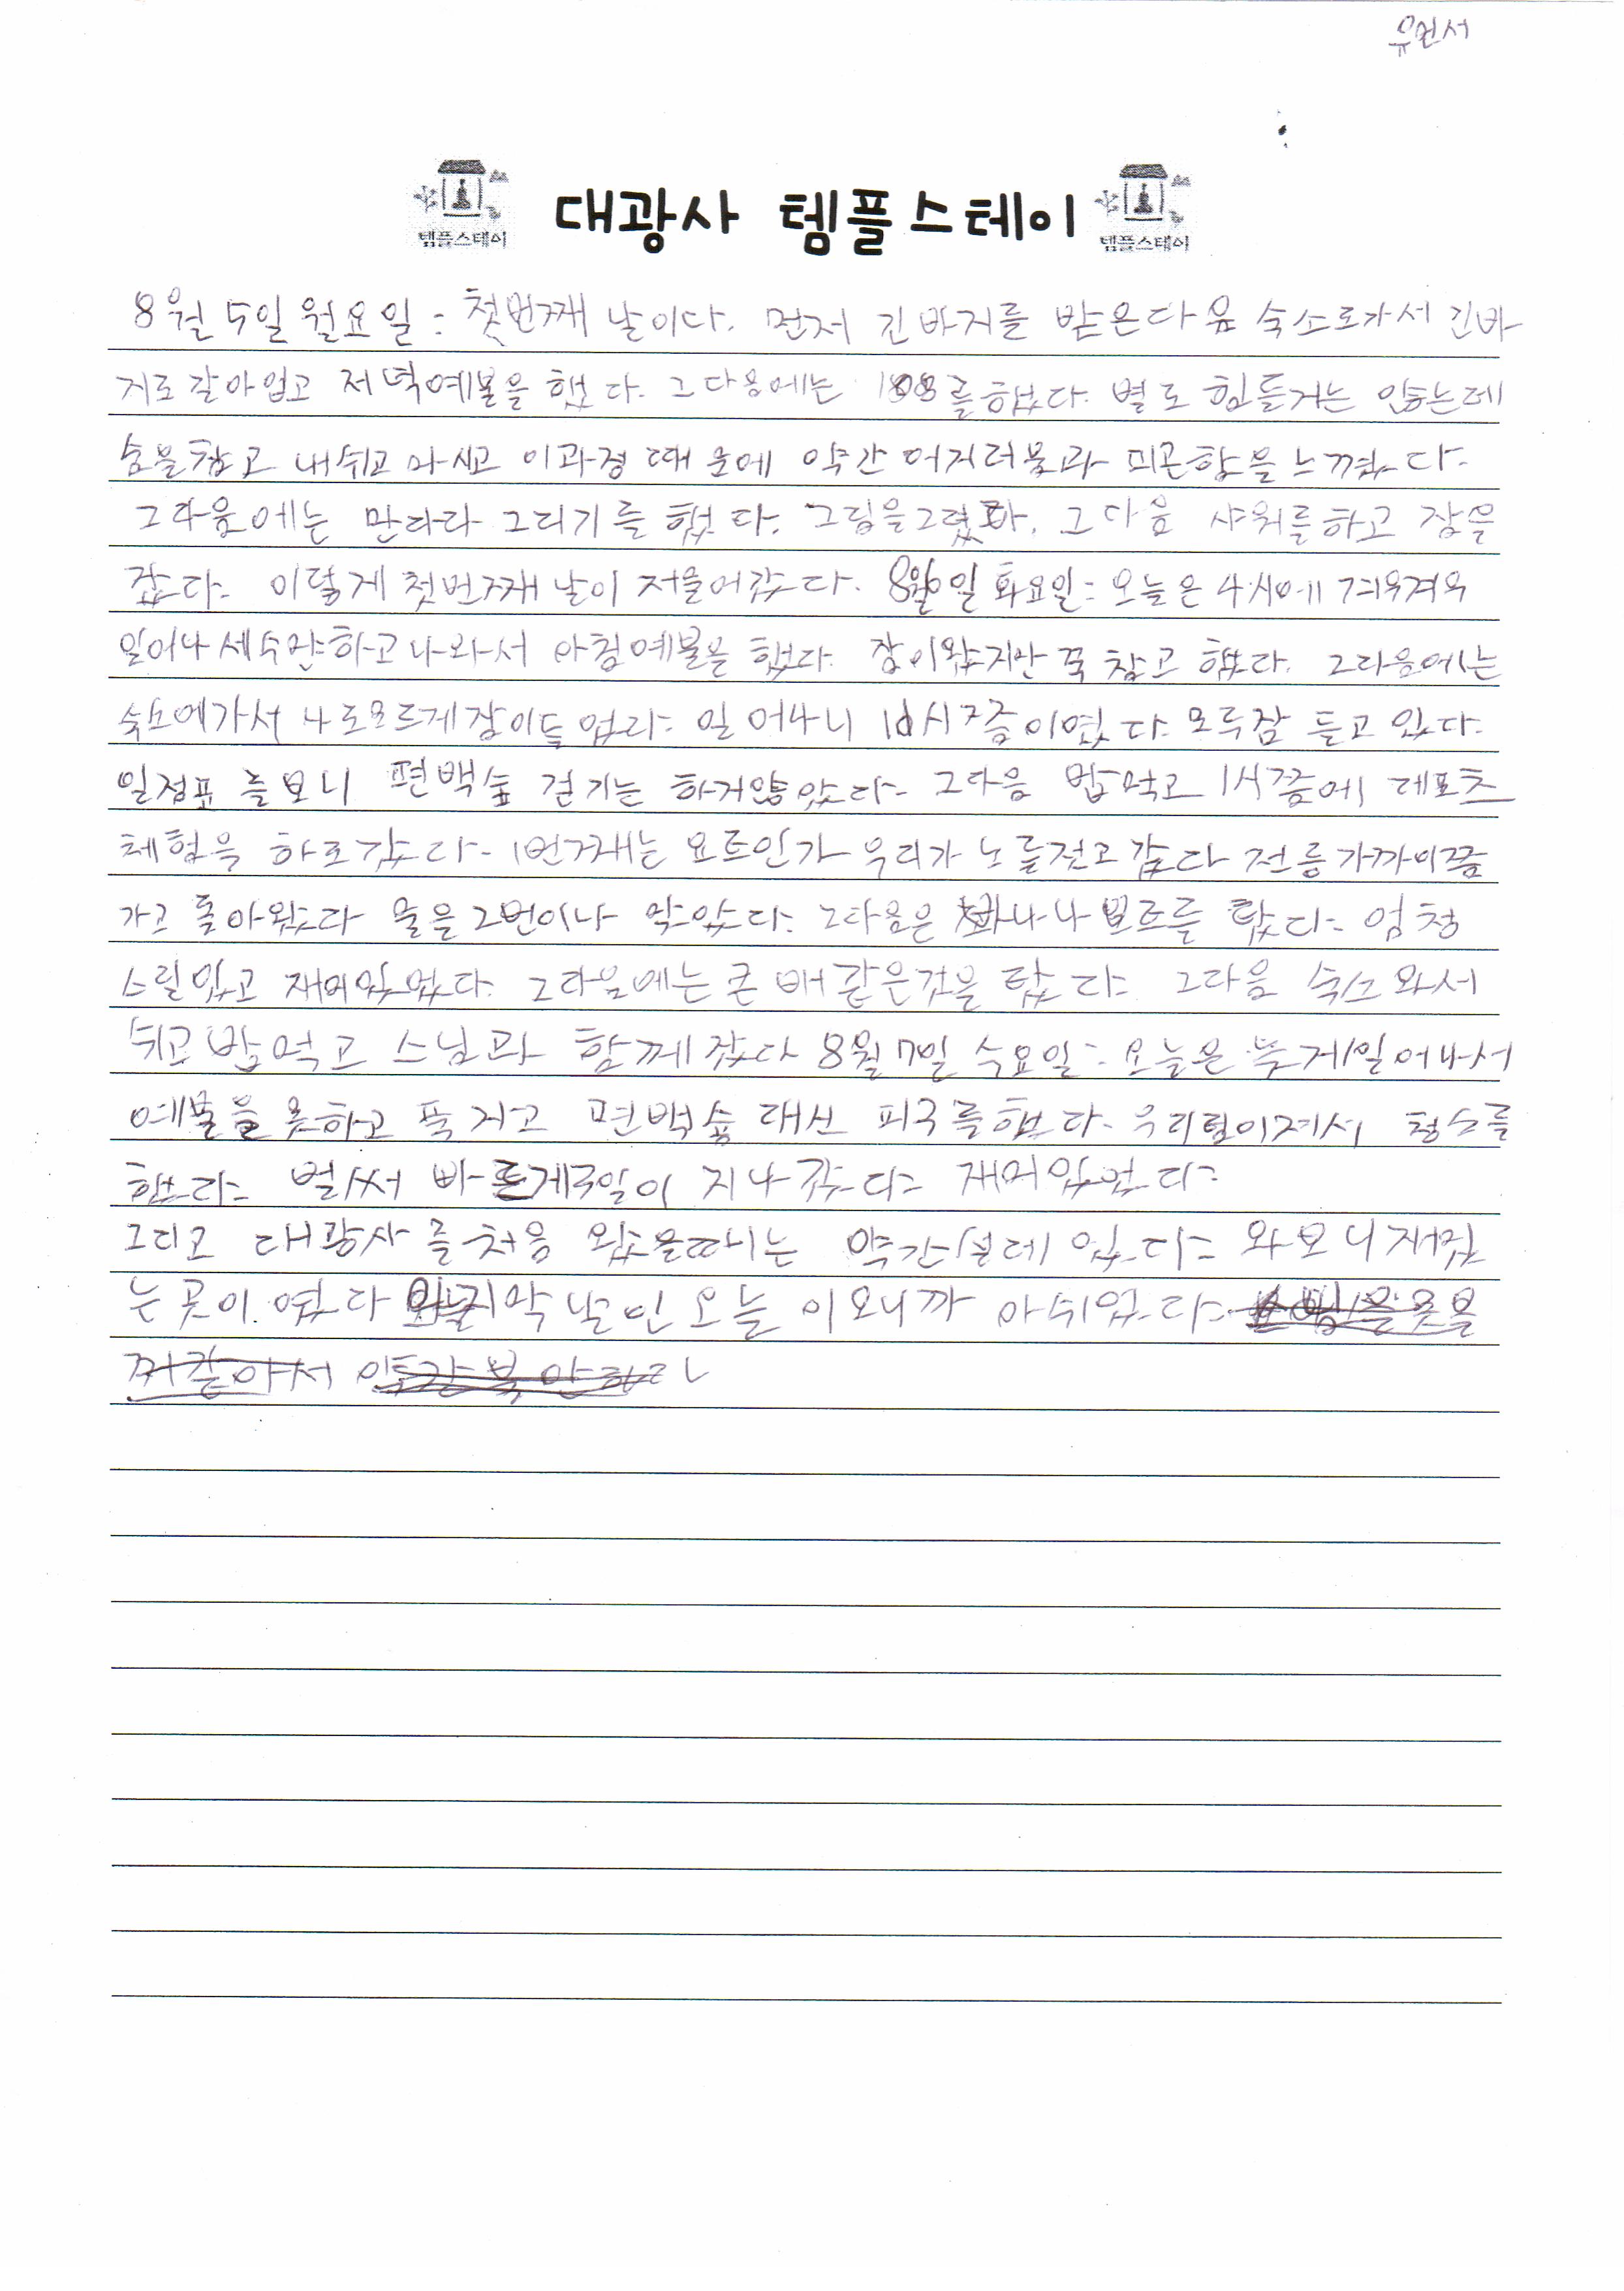 유현서
템플스테이 대광사 템플스테이 템플스테이
8월 5일 월요일: 첫번째 날이다. 먼저 긴바지를 받은다음 숙소로가서 긴바
지로 갈아입고 저녁예불을 했다. 그다음에는 108를했다. 별로 힘들거는 않는데
숨을참고 내쉬고 마시고 이과정 때문에 약간 어지러움과 피곤함을 느꼈다.
그다음에는 만다라 그리기를 했다. 그림을그렸다. 그다음 샤워를하고 잠을
잤다. 이렇게 첫번째 날이 저물어갔다. 8월6일 화요일: 오늘은 4시에 겨우겨우
일어나 세수만하고나와서 아침예불을 했다. 잠이왔지만 꾹 참고 했다. 그다음에는
숙소에가서 나도모르게잠이들었다. 일어나니 10시쯤이였다. 모두잠 들고 있다.
일정표를보니 편백숲 걷기는 하지않았다. 그다음 밥먹고 1시쯤에 레포츠
체험을 하로갔다. 1번째는 요트인가 우리가 노를젓고 갔다 전릉가까이쯤
가고 돌아왔다 물을2번이나 먹었다. 그다음은 바나나보트를 탔다. 엄청
스릴있고 재미있었다. 그다음에는 큰 배같은것을 탔다. 그다음 숙소와서
쉬고 밥먹고 스님과 함께 잤다 8월7일 수요일: 오늘은 늦게일어나서
예불을 못하고 푹자고 편백숲 대신 피구를했다. 우리팀이져서 청소를
했다. 벌써 빠르게3일이 지나갔다. 재미있었다.
그리고 대광사를처음 왔을때는 약간 있다. 와보니재밌
는곳이.였다 마지막날인오늘 이되니까 아쉬웠다.